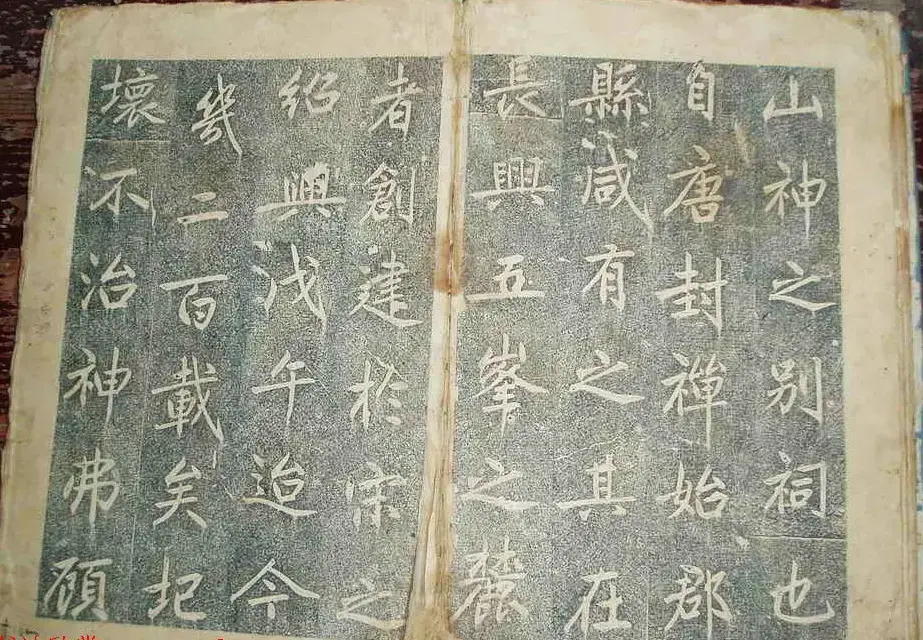 山神之别祠也
自唐封禪始郡
縣咸有之其在
長興五峯之麓
者創建於宋之
紹興戊午迨今
幾二百載矣圮
壞不治神弗顧